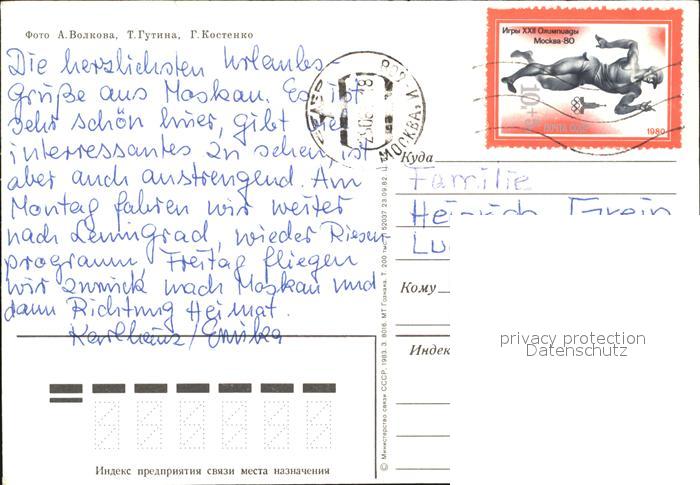 Фото А. Волкова, Т. Гутина, Г. Костенко
Die herzlichsten Urlaubs-
Grüße aus Moskau. Es ist
sehr schön hier, gibt viel
interressantes zu sehen ist
aber auch anstrengend. Am
Montag fahren wir weiter
nach Leningrad, wieder Riesen-
programm, Freitag fliegen
wir zurück nach Moskau und
dann Richtung Heimat.
Karlheinz/
МОСКВА
Игры XXII Олимпиады
Москва-80
10+5
ПОЧТА СССР
1980
Куда
Familie
Heinrich
Lu
Кому
Индекс
privacy protection
Datenschutz
© Министерство связи СССР, 1983. З. 8016. МТ Гознака. Т. 200 тыс. 62037. 23.09.82.
Индекс предприятия связи места назначения